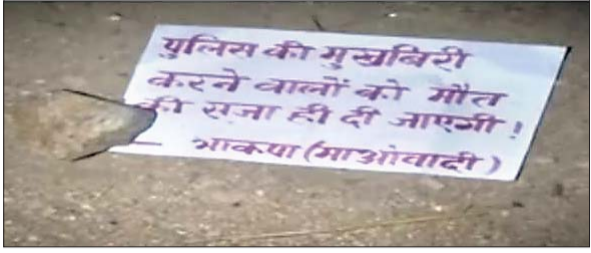 पुलिस की मुखबिरी
करने वालों को मौत
की सजा ही दी जाएगी !
— भाकपा (माओवादी)